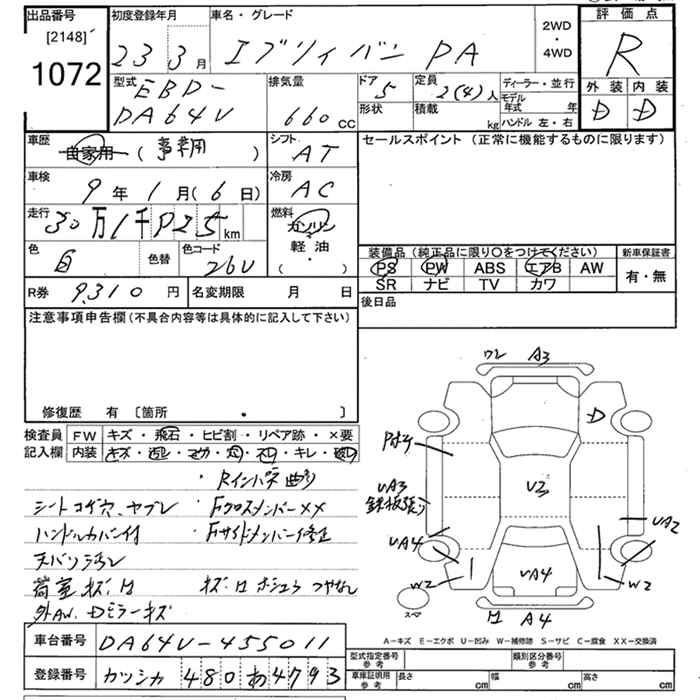 出品番号
[2148]
1072
初度登録年月
23 3月
車名・グレード
エブリィバン PA
2WD
・
4WD
評価点
R
外装 内装
D D
型式
EBD-
DA64V
排気量
660 CC
ドア
5
定員
2(4)人
ディーラー・並行
形状
積載
kg
モデル年式 年
ハンドル 左・右
車歴
自家用 (事業用)
シフト
AT
セールスポイント (正常に機能するものに限ります)
車検
9年 1月(6日)
冷房
AC
走行
30万1千925km
燃料
ガソリン
軽油
( ・ )
色
白
色替
色コード
26U
装備品 (純正品に限り○をつけてください)
新車保証書
PS PW ABS エアB AW
SR ナビ TV カワ
有・無
R券 9,310円
名変期限 月 日
後日品
注意事項申告欄 (不具合内容等は具体的に記入して下さい)
修復歴 有 〔箇所 ・ 〕
検査員
記入欄
FW キズ・飛石・ヒビ割・リペア跡・×要
内装 キズ・ ・ ・ ・ ・キレ・
・Rインパネ曲り
シートコゲ穴、ヤブレ ・FクロスメンバーXX
ハンドルカバー付 ・Fサイドメンバー修正
天バリ
荷室キズ、凹 キズ、凹 ホシュウ ツヤなし
外AW、Dミラーキズ
車台番号 DA64V-455011
登録番号 カツシカ 480 あ4793
ワレ A3
D
UA3
鉄板張り
U3
UA2
UA4
UA4
W2
W2
スペア
凹 A4
A-キズ E-エクボ U-凹み W-補修跡 S-サビ C-腐食 XX-交換済
型式指定番号
参考
類別区分番号
参考
車庫証明用
参考
長さ cm
幅 cm
高さ cm